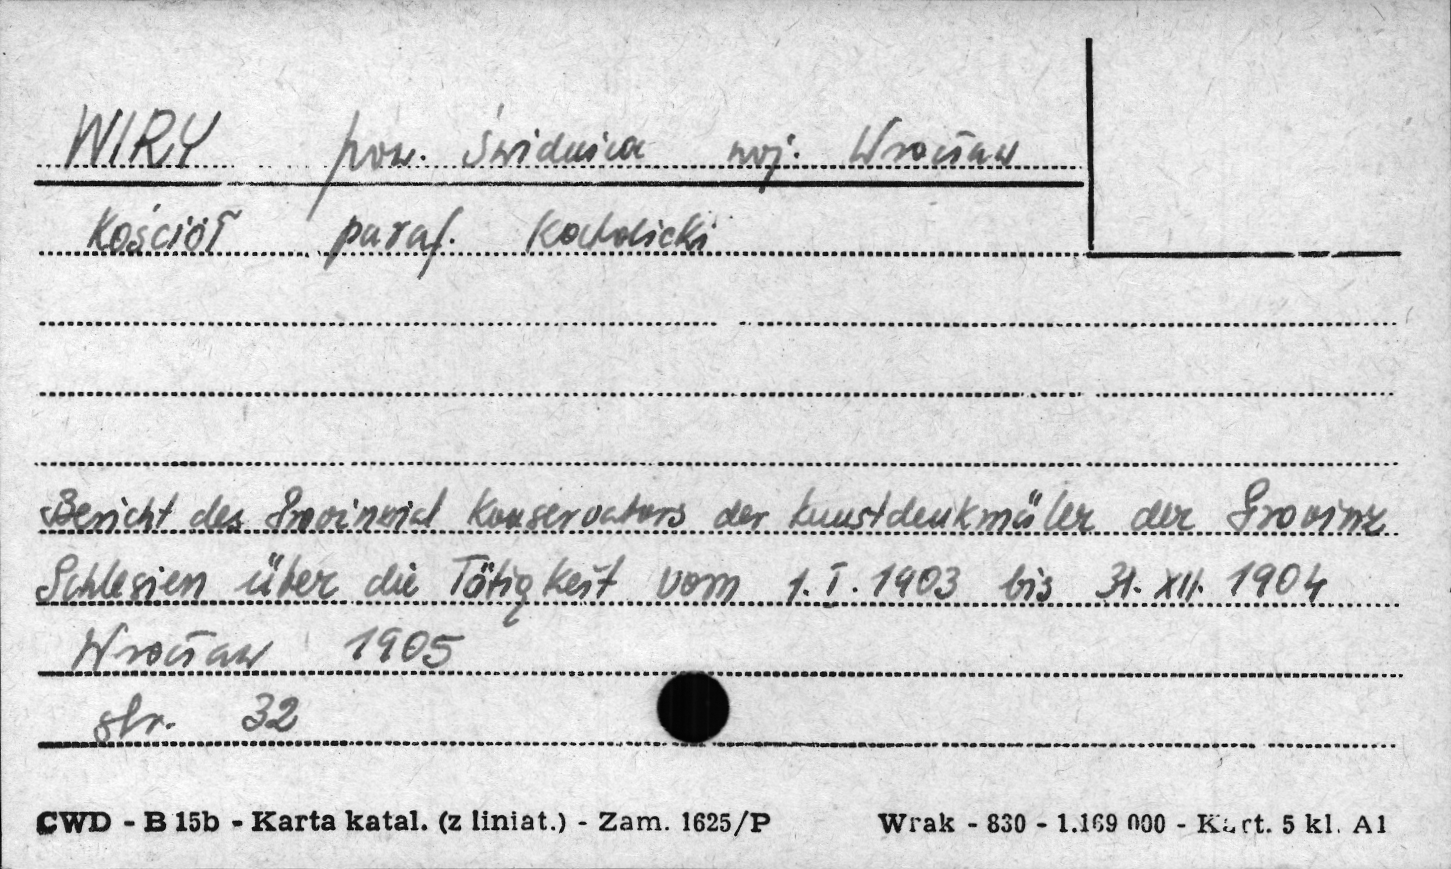 WIRY pow. Świdnica woj. Wrocław
Kościół paraf. Katolicki
Bericht des Provinzial Konservators der Kunstdenkmäler der Provinz
Schlesien über die Tätigkeit vom 1.I.1903 bis 31.XII.1904
Wrocław 1905
str. 32
CWD - B 15b - Karta katal. (z liniat.) - Zam. 1625/P Wrak - 830 - 1.169 000 - Kart. 5 kl. A1